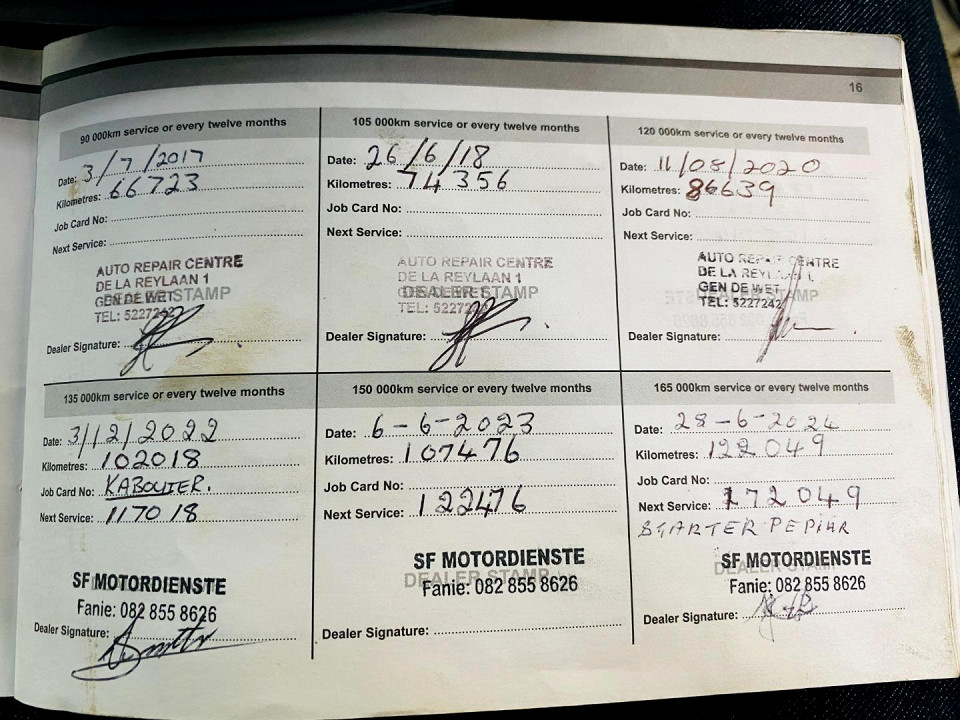 16
90 000km service or every twelve months
Date: 3/7/2017
Kilometres: 66723
Job Card No:
Next Service:
AUTO REPAIR CENTRE
DE LA REYLAAN 1
GEN DE WET
DEALER STAMP
TEL: 5227242
Dealer Signature:
105 000km service or every twelve months
Date: 26/6/18
Kilometres: 74356
Job Card No:
Next Service:
AUTO REPAIR CENTRE
DE LA REYLAAN 1
GEN DE WET
DEALER STAMP
TEL: 5227242
Dealer Signature:
120 000km service or every twelve months
Date: 11/08/2020
Kilometres: 86639
Job Card No:
Next Service:
AUTO REPAIR CENTRE
DE LA REYLAAN 1
GEN DE WET
DEALER STAMP
TEL: 5227242
Dealer Signature:
135 000km service or every twelve months
Date: 3/12/2022
Kilometres: 102018
Job Card No: KABOUTER.
Next Service: 117018
SF MOTORDIENSTE
Fanie: 082 855 8626
Dealer Signature:
150 000km service or every twelve months
Date: 6-6-2023
Kilometres: 107476
Job Card No:
Next Service: 122476
SF MOTORDIENSTE
DEALER STAMP
Fanie: 082 855 8626
Dealer Signature:
165 000km service or every twelve months
Date: 28-6-2024
Kilometres: 122049
Job Card No:
Next Service: 172049
STARTER PEPIHR
SF MOTORDIENSTE
DEALER STAMP
Fanie: 082 855 8626
Dealer Signature: